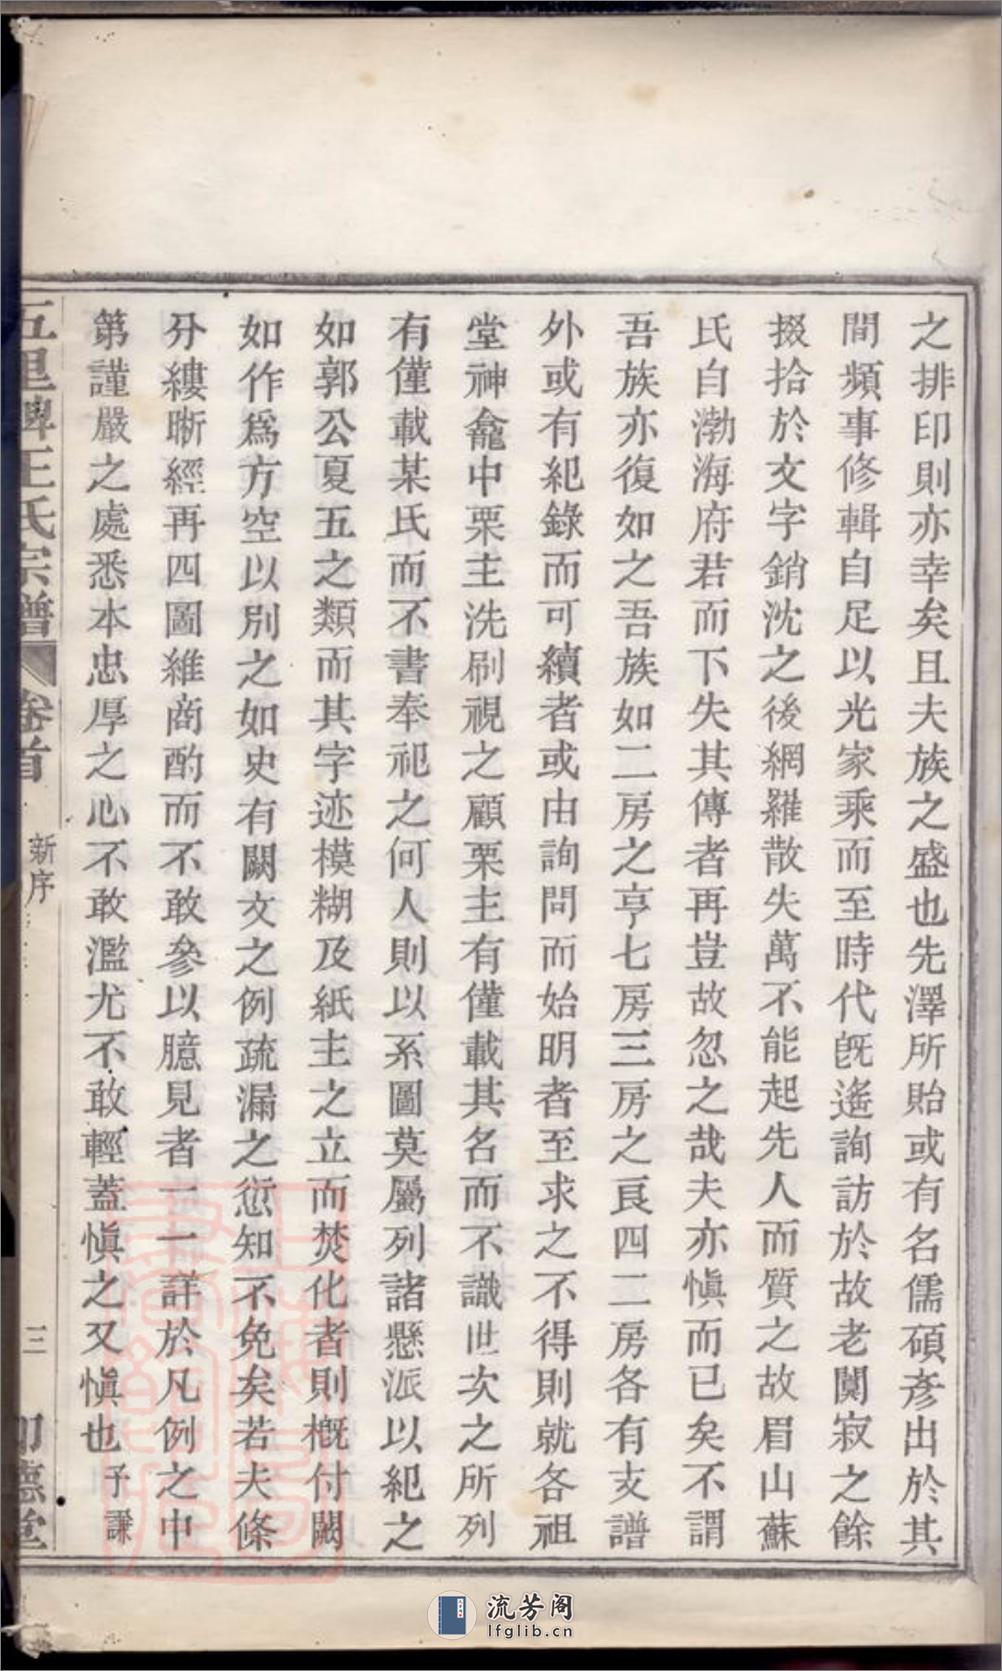 之排印則亦幸矣且夫族之盛也先澤所貽或有名儒碩彥出於其
間頻事修輯自足以光家乘而至時代旣遙詢訪於故老闃寂之餘
掇拾於文字銷沈之後網羅散失萬不能起先人而質之故眉山蘇
氏自渤海府君而下失其傳者再豈故忽之哉夫亦愼而已矣不謂
吾族亦復如之吾族如二房之亨七房三房之良四二房各有支譜
外或有紀錄而可續者或由詢問而始明者至求之不得則就各祖
堂神龕中栗主洗刷視之顧栗主有僅載其名而不識世次之所列
有僅載某氏而不書奉祀之何人則以系圖莫屬列諸懸派以紀之
如郭公夏五之類而其字迹模糊及紙主之立而焚化者則槪付闕
如作爲方空以別之如史有闕文之例疏漏之愆知不免矣若夫條
分縷晰經再四圖維商酌而不敢參以臆見者一一詳於凡例之中
第謹嚴之處悉本忠厚之心不敢濫尤不敢輕蓋愼之又愼也子謙
五里牌王氏宗譜 卷首 新序 三 德堂
流芳阁
lfglib.cn